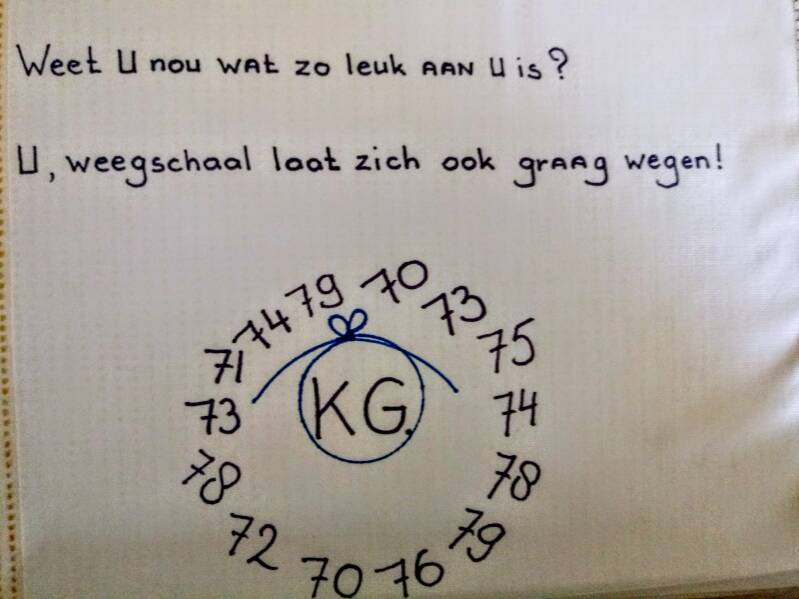 Weet U nou wat zo leuk aan U is?
U, weegschaal laat zich ook graag wegen!
79
70
74
73
71
75
73
KG.
74
78
78
72
79
70
76